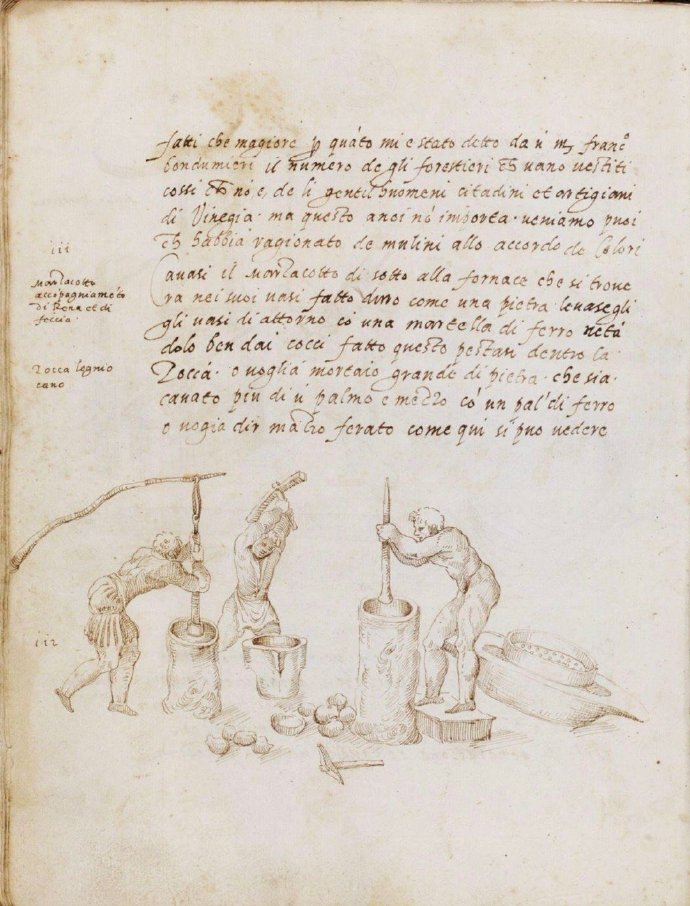 fatti che magiore p quāto mi e stato detto da ū mͬ franc°
bondumieri il numero de gli forestieri ch vano vestiti
cossi ch no e, de li gentil huomeni citadini et artigiani
di Vinegia. ma questo a noi nō importa. veniamo puoi
ch habbia ragionato de mulini allo accordo de Colori
iii
Cavasi il Marzacotto di sotto alla fornace che si trove
ra nei suoi vasi fatto duro come una pietra levasegli
gli vasi di attorno cō una martella di ferro netā
dolo ben dai cocci fatto questo pestasi dentro la
Zocca. o voglia mortaio grande di pietra. che sia.
cavato piu di ū palmo e mezzo cō un pal di ferro
o vogia dir mazzo ferato come qui si puo vedere
Marzacotto
accōpagniamēto
di Rena et di
feccia.
Zocca legnio
cavo
iii